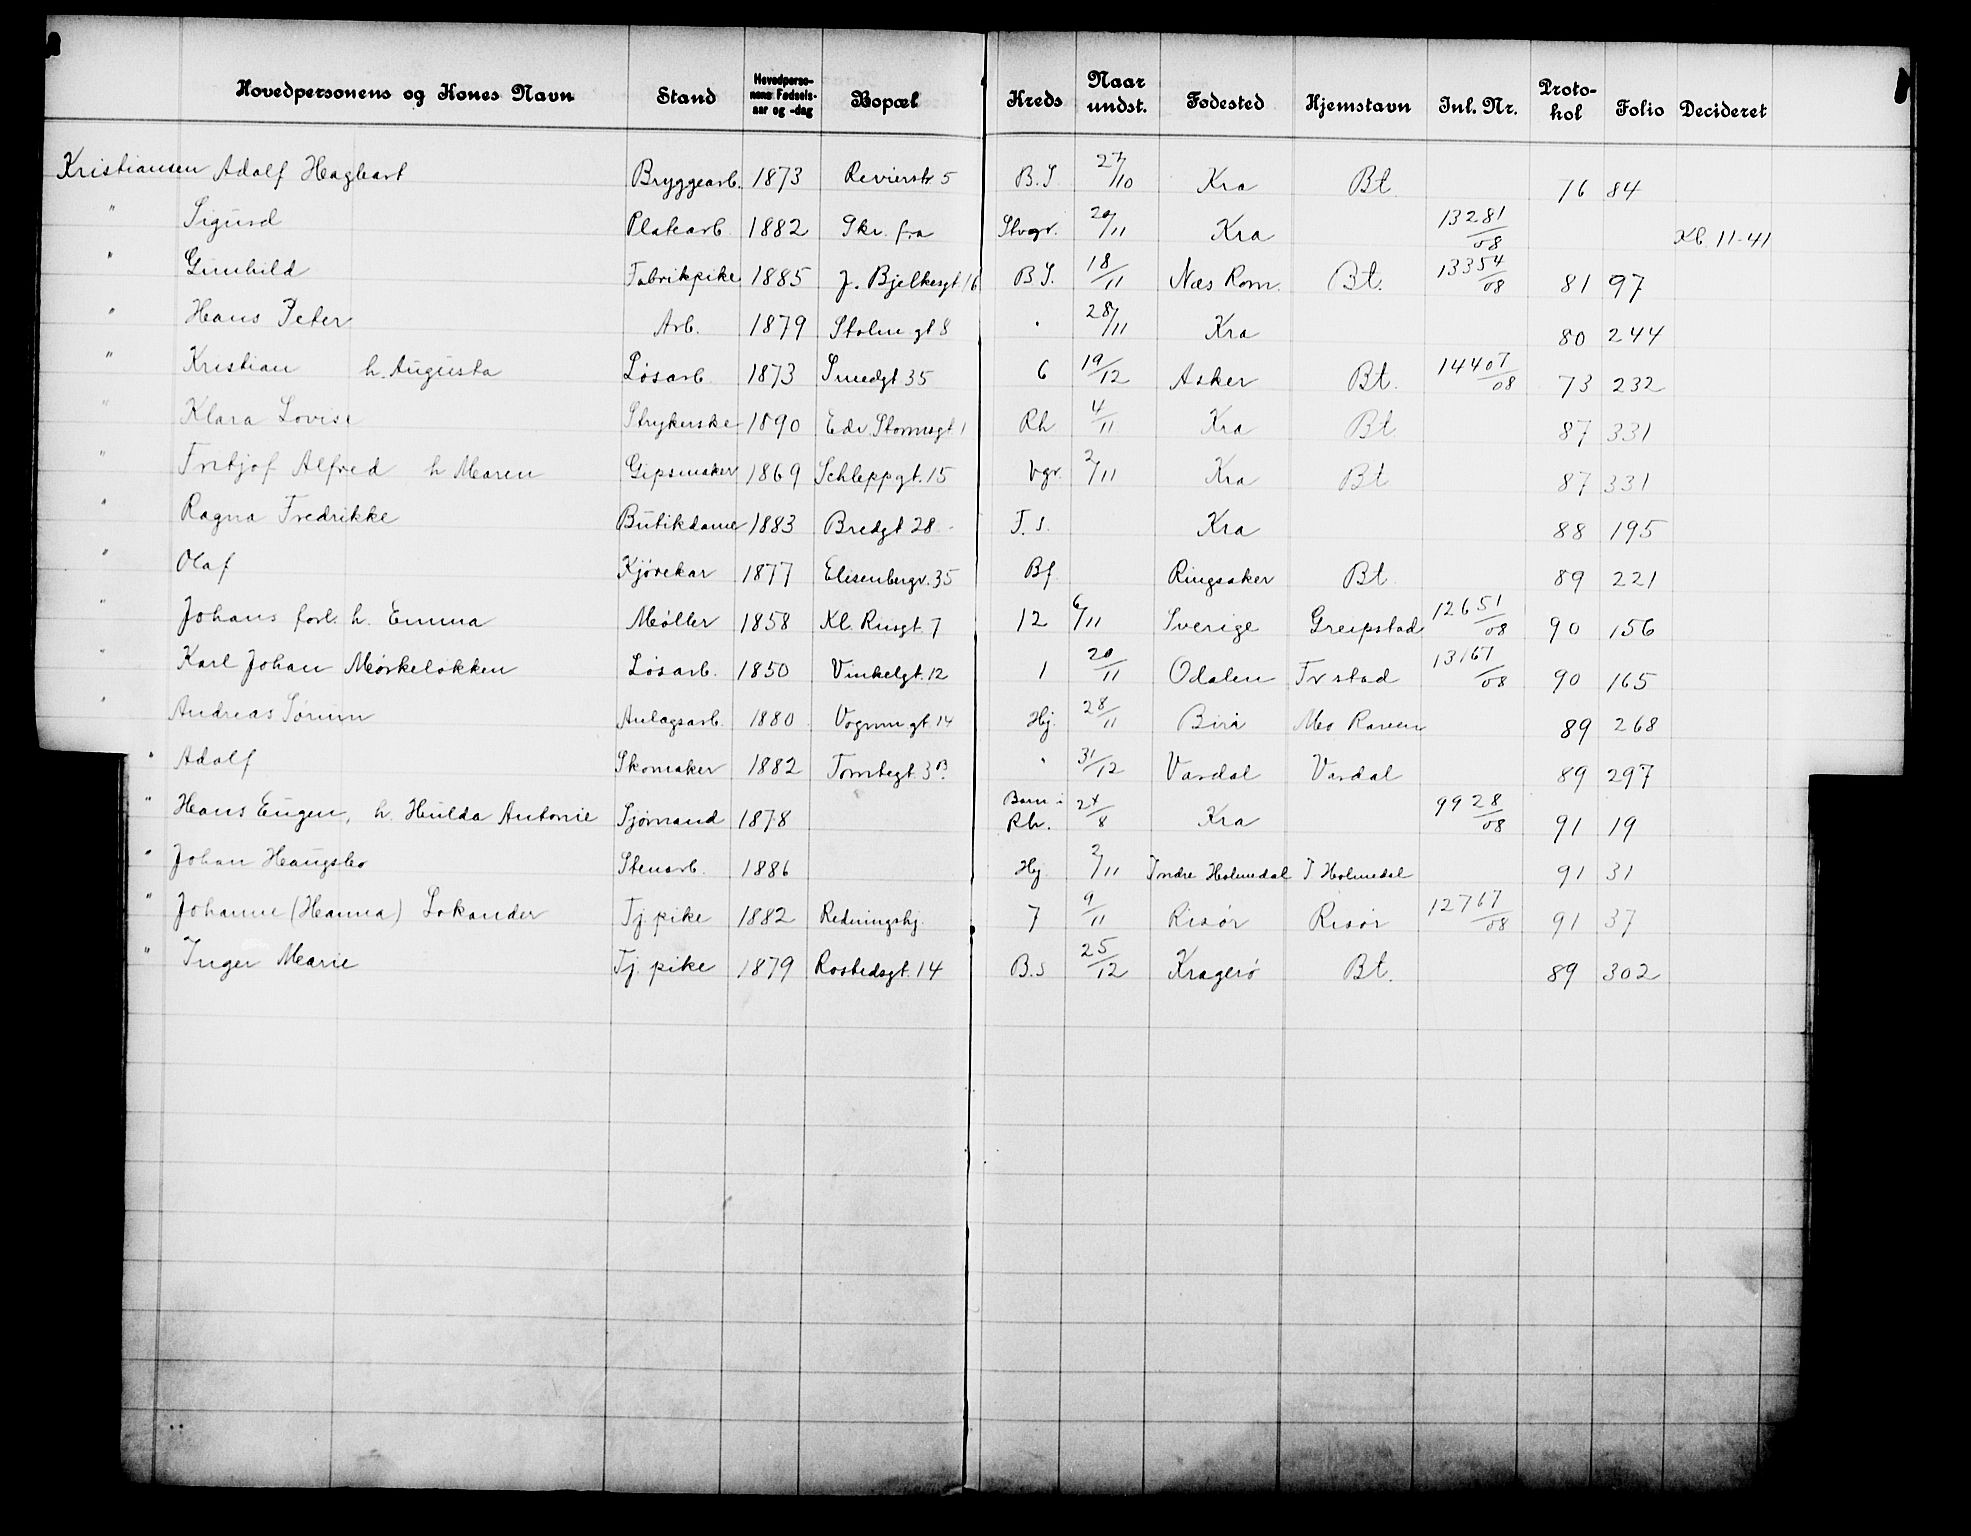 Hovedpersonens og Kones Navn Stand Hovedpersonens Fødselsaar og -dag Bopæl Kreds Naar undst. Fødested Hjemstavn Inl. Nr. Protokol Folio Decideret
Kristiansen Adolf Hagbart Bryggearb. 1873 Revierstr. 5 B.S. 27/10 Kra Bt 76 84
" Sigurd Platearb. 1882 Skr. fra Stvgr. 20/11 Kra 13281/08 Kl. 11-41
" Gunhild Fabrikpike 1885 J. Bjelkesgt 16 B S. 18/11 Næs Rom. Bt. 13354/08 81 97
" Hans Peter Arb. 1879 Stolm gt 8 " 28/11 Kra 80 244
" Kristian h. Augusta Løsarb. 1873 Smedgt 35 6 19/12 Asker Bt. 14407/08 73 232
" Klara Lovise Strykerske 1890 Edv. Stormsgt 1 Rh 4/11 Kra Bt 87 331
" Fritjof Alfred h Maren Gipsmaker 1869 Schleppgt. 15 Vgr. 2/11 Kra Bt 87 331
" Ragna Fredrikke Butikdame 1883 Bredgt 28 F. s. Kra 88 195
" Olaf Kjørekar 1877 Elisenbergv. 35 Bf Ringsaker Bt 89 221
" Johans forl. h. Emma Møller 1858 Kl. Rusgt. 7 12 6/11 Sverige Greipstad 12651/08 90 156
" Karl Johan Mørkeløkken Løsarb. 1850 Vinkelgt. 12 1 20/11 Odalen Trstad 13167/08 90 165
" Andreas Sørum Anlagsarb. 1880 Vognm gt. 14 Hj. 28/11 Biri Mo Ranen 89 268
" Adolf Skomaker 1882 Tomtegt. 3B " 31/12 Vardal Vardal 89 297
" Hans Eugen, h. Hulda Antonie Sjømand 1878 Barn i Rh. 24/8 Kra 9928/08 91 19
" Johan Haugsbo Stenarb. 1886 Hj 2/11 Indre Holmedal I Holmedal 91 31
" Johanne (Hanna) Lokander Tj. pike 1882 Redningshj. 7 9/11 Risør Risør 12767/08 91 37
" Inger Marie Tj. pike 1879 Rostedsgt. 14 B.s 25/12 Kragerø Bt. 89 302